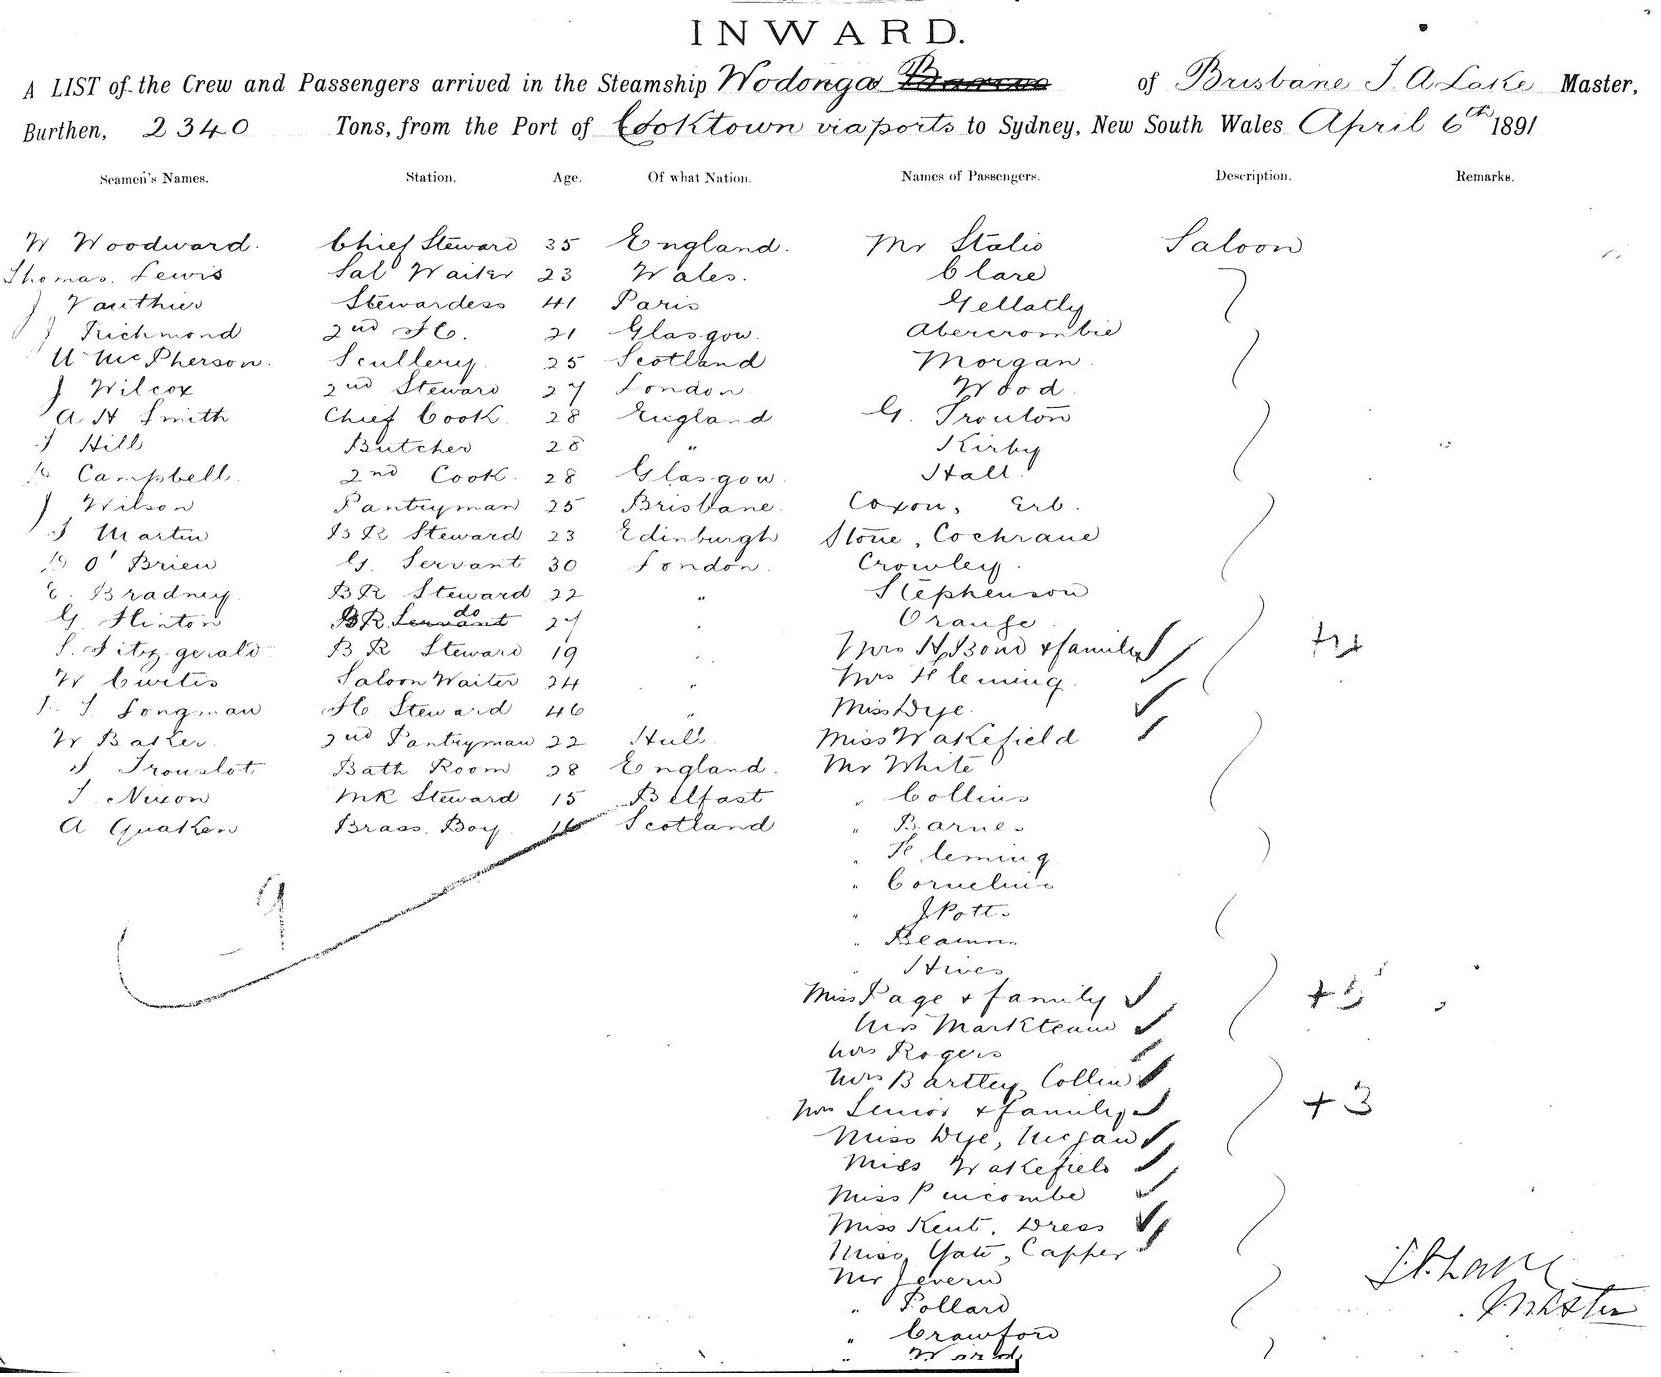 INWARD.
A LIST of the Crew and Passengers arrived in the Steamship Wodonga of Brisbane J. A Lake Master,
Burthen, 2340 Tons, from the Port of Cooktown via ports to Sydney, New South Wales April 6th 1891
Seamen's Names. Station. Age. Of what Nation. Names of Passengers. Description. Remarks.
W Woodward. Chief Steward 35 England. Mr Saloon
Thomas Lewis Sal Waiter 23 Wales. Clare
J Vauthier Stewardess 41 Paris Gellatly
J Richmond 2nd 21 Glasgow. Abercrombie
McPherson. Scullery. 25 Scotland Morgan.
J Wilcox 2nd Steward 27 London Wood.
A. H Smith Chief Cook. 28 England G. Trouton
Hill Butcher 28 " Kirby
Campbell. 2nd Cook. 28 Glasgow. Hall.
J Wilson Pantryman 25 Brisbane. Coxon,
Martin B R Steward 23 Edinburgh Stone, Cochrane
O'Brien G. Servant 30 London. Crowley.
E. Bradney. BR Steward 22 " Stephenson
G. BR do 27
Fitzgerald B R Steward 19 Mrs H Bond & family
W Curtis Saloon Waiter 24 " Mrs Fleming.
Longman Steward 46 " Miss Dye.
W Baker. 2nd Pantryman 22 Hull. Miss Wakefield
Bath Room 28 England. Mr White
Nixon MR Steward 15 Belfast " Collins
A Quaken Brass. Boy. 16 Scotland " Barnes
" Fleming
9 " Cornelius
" J Potts
"
Hives
Miss Page & family
Mrs
Mrs Rogers
Mrs Bartley, Collin
Mrs Senior & family + 3
Miss Dye,
Miss Wakefield
Miss Pincombe
Miss Kent.
Miss Capper
Mr
" Pollard
" Crawford
" Ward
Master